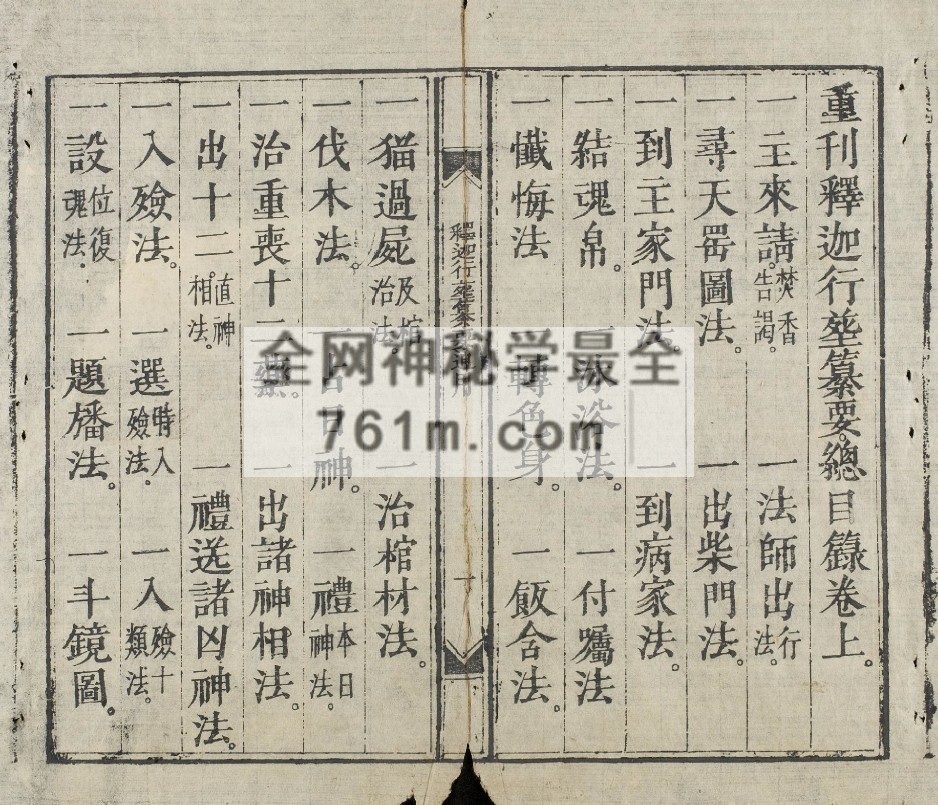 重刊釋迦行𦵏纂要。總目錄卷上。
一主來請。焚香告謁。 一法師出行法。
一尋天罡圖法。 一出柴門法。
一到主家門法。 一到病家法。
一結魂帛。 一沐浴法。 一付囑法
一懺悔法 一轉色身。 一飯含法。
釋迦行𦵏纂要
一猫過屍及棺治法。 一治棺材法。
一伐木法。 神。 一禮本日神法。
一治重喪十二 。 一出諸神相法。
一出十二直神相法。 一禮送諸凶神法。
一入殮法。 一選時入殮法。 一入殮十類法。
一設位復魂法。 一題旛法。 一斗鏡圖。
全网神秘学最全
761m.com